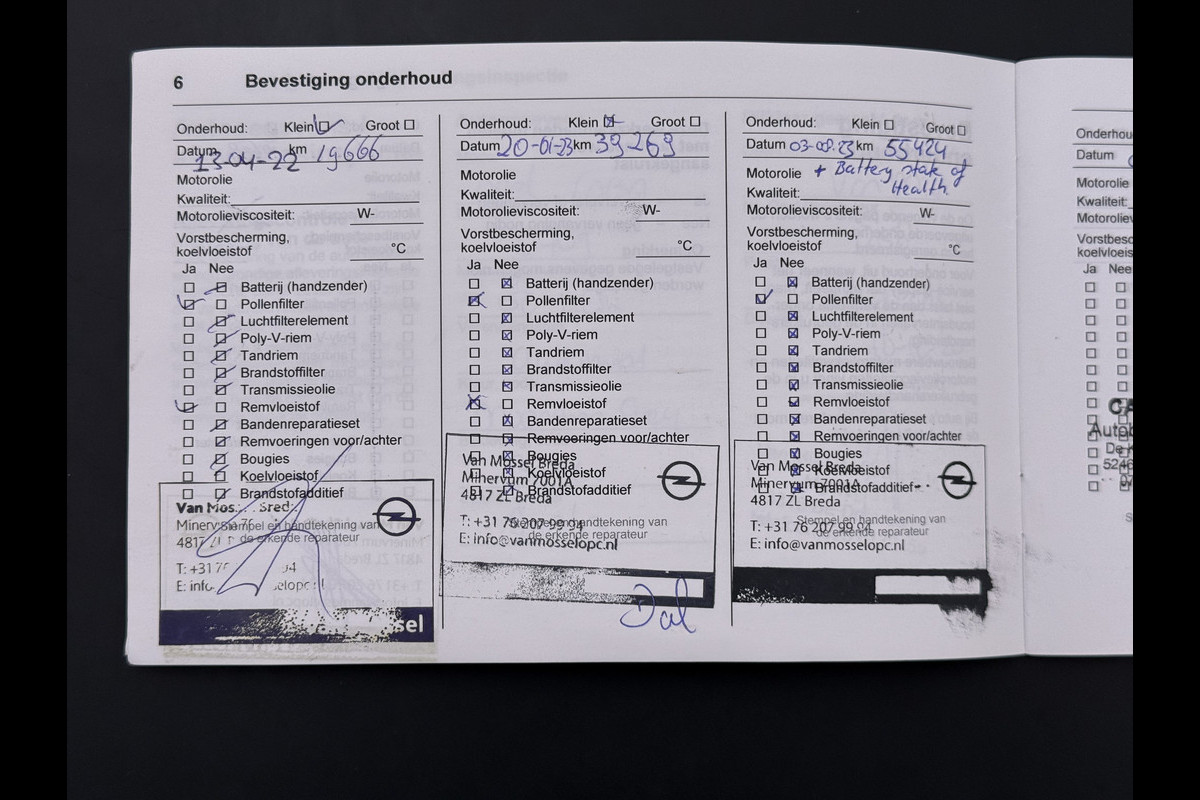 6 Bevestiging onderhoud
Onderhoud: Klein Groot
Datum 13-04-22 km 19666
Motorolie
Kwaliteit:
Motorolieviscositeit: W-
Vorstbescherming,
koelvloeistof °C
Ja Nee
Batterij (handzender)
Pollenfilter
Luchtfilterelement
Poly-V-riem
Tandriem
Brandstoffilter
Transmissieolie
Remvloeistof
Bandenreparatieset
Remvoeringen voor/achter
Bougies
Koelvloeistof
Brandstofadditief
Stempel en handtekening van
de erkende reparateur
Van Mos
Bred
4817
T: +31 7
94
E: info
selopc
sel
Onderhoud: Klein Groot
Datum 20-01-23 km 39269
Motorolie
Kwaliteit:
Motorolieviscositeit: W-
Vorstbescherming,
koelvloeistof °C
Ja Nee
Batterij (handzender)
Pollenfilter
Luchtfilterelement
Poly-V-riem
Tandriem
Brandstoffilter
Transmissieolie
Remvloeistof
Bandenreparatieset
Remvoeringen voor/achter
Bougies
Koelvloeistof
Brandstofadditief
Stempel en handtekening van
de erkende reparateur
Van Mossel Breda
Minervum 7001A
4817 ZL Breda
T: +31 76 207 99 94
E: info@vanmosselopc.nl
Onderhoud: Klein Groot
Datum 03-08-23 km 55424
Motorolie + Battery state of
Health.
Kwaliteit:
Motorolieviscositeit: W-
Vorstbescherming,
koelvloeistof °C
Ja Nee
Batterij (handzender)
Pollenfilter
Luchtfilterelement
Poly-V-riem
Tandriem
Brandstoffilter
Transmissieolie
Remvloeistof
Bandenreparatieset
Remvoeringen voor/achter
Bougies
Koelvloeistof
Brandstofadditief
Stempel en handtekening van
de erkende reparateur
Van Mossel Breda
Minervum 7001A
4817 ZL Breda
T: +31 76 207 99 94
E: info@vanmosselopc.nl
Onderhou
Datum
Motorolie
Kwaliteit:
Motoroliev
Vorstbesc
koelvloeis
Ja Nee
CA
Autob
De K
5246